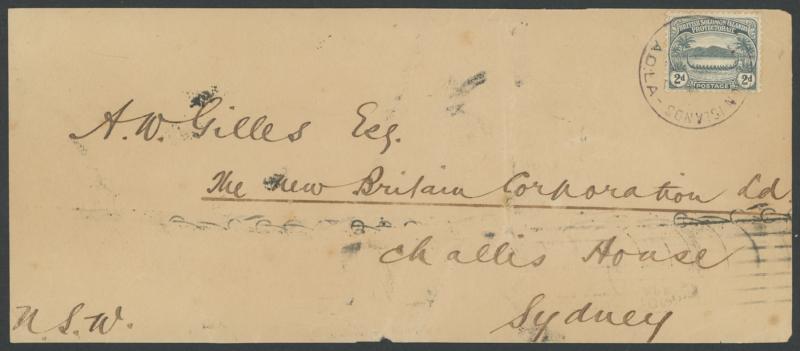 BRITISH SOLOMON ISLANDS
PROTECTORATE
2d 2d
POSTAGE
ISLANDS
A.W. Gilles Esq.
The New Britain Corporation Ld.
Challis House
Sydney
N.S.W.